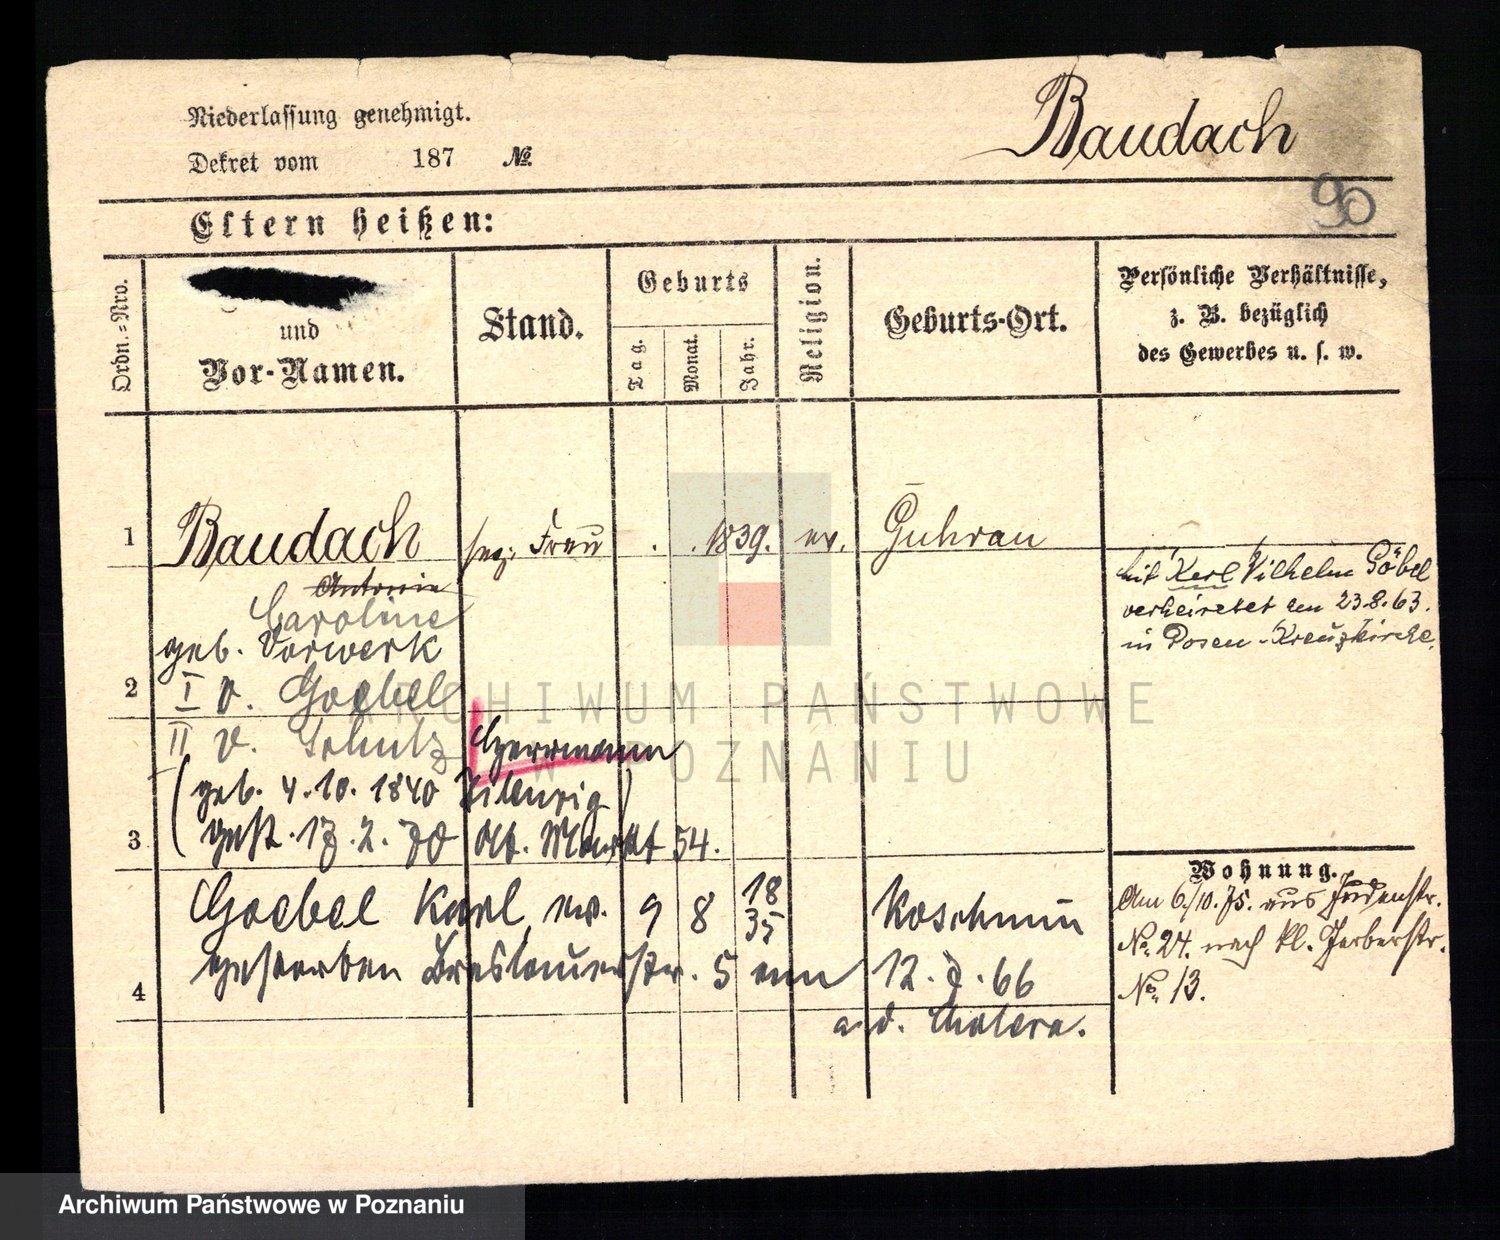 Niederlassung genehmigt.
Dekret vom 187 №
Baudach
90
Eltern heißen:
Ordn.-Nro.
und
Vor-Namen.
Stand.
Geburts
Tag.
Monat.
Jahr.
Religion.
Geburts-Ort.
Persönliche Verhältnisse,
z. B. bezüglich
des Gewerbes u. s. w.
1 Baudach Frau 1839. ev. Guhrau
Antonie
Caroline
geb. Vorwerk
2 I v. Goebel
II v. Schulz Herrmann
(geb. 4.10.1840
3 gest. 17.2.70 Alt. Markt 54.
mit Karl Vilhelm Göbel
verheiretet am 23.8.63.
in Posen-Kreuzkirche.
Goebel Karl ev. 9 8 18
35 Koschmin
4 gestorben Breslauerstr. 5 am 12.7.66
a. d. Cholera.
Wohnung.
Am 6/10.75. aus Judenstr.
No. 24. nach kl. Gerberstr.
No. 13.
ARCHIWUM PAŃSTWOWE
W POZNANIU
Archiwum Państwowe w Poznaniu